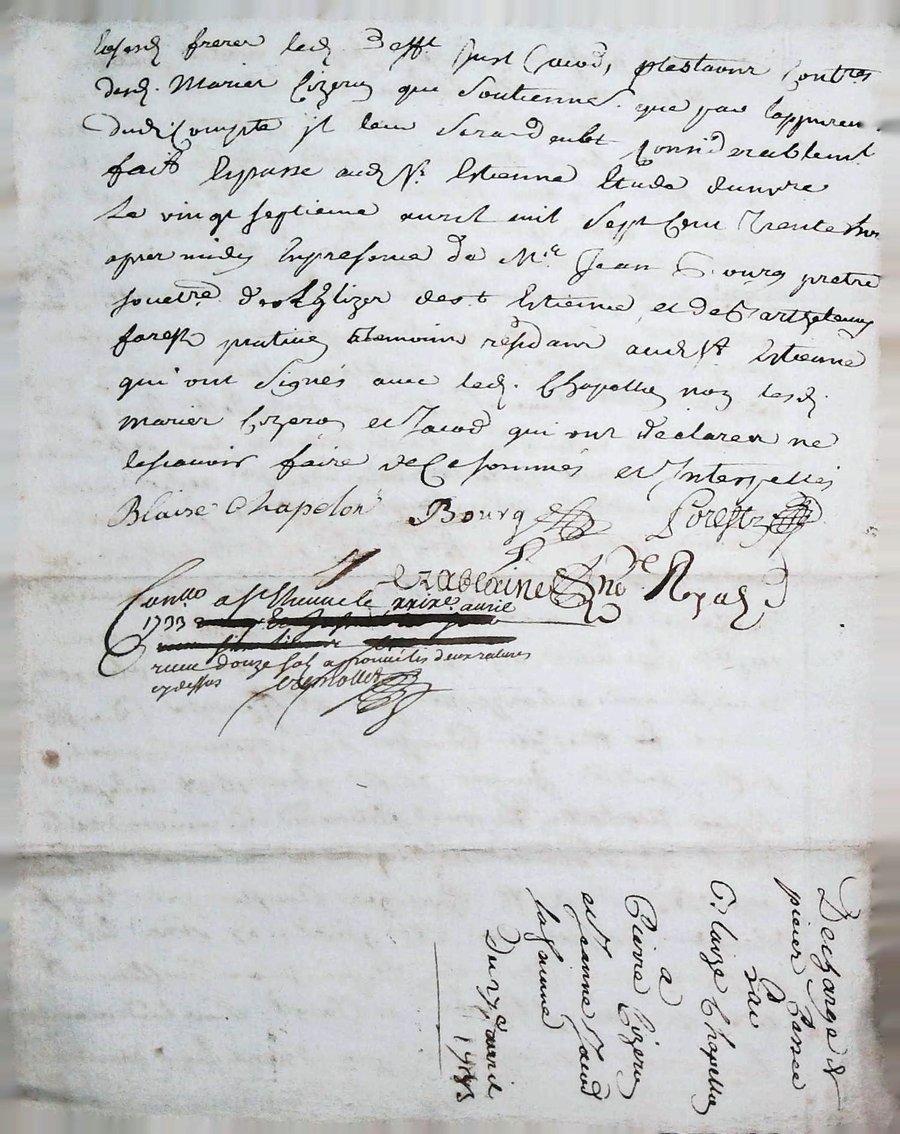 frerer led. defft Just Jacod, plestaour Contres
desd. Mariez Cizeron que Soutiennes que par lappuren
dudi Compte jl leur Seraud enbt Considerablemt
faitEpasse aud St. Estienne Etude dunore
Le vingt septieme avril mil sept Cent Trente trois
apres midy Enpresence de Mre Jean Bourg pretre
Soucre. des Eglizes de st Estienne, et de Barthelemy
forest praticien temoins residans aud St Estienne
qui ont Signés avec led. Chapellon non lesd.
Mariez Cizeron et Jacod qui ont declarez ne
lescavoir faire de Ce sommés et Interpellés
Blaise Chapelon Bourg Forest
Ezableine no.re Royal
Con.llo a St Etienne le xxixe avril
1733
receu douze sols approuvé les deux ratures
cydessus
Decharge &
pieces Passée
Par
Blaize Chapellon
a
Pierre Cizeron
et Jeanne Jacod
sa femme
Du 27e avril
1733